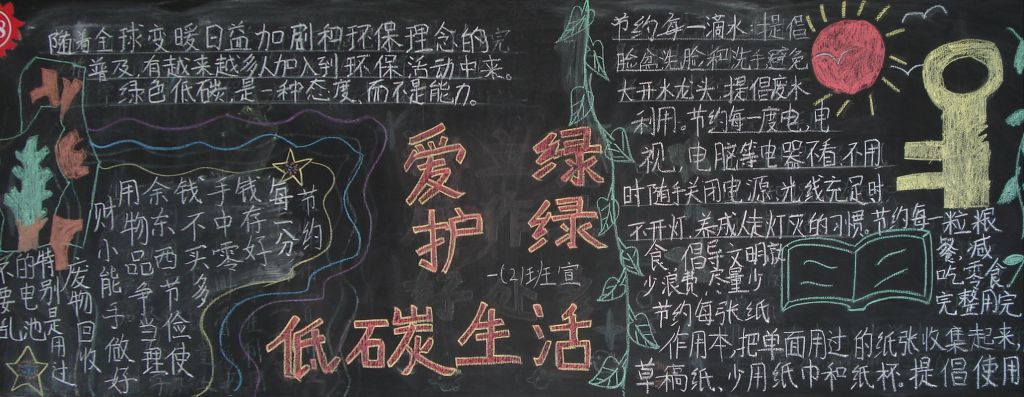 随着全球变暖日益加剧和环保理念的完
普及,有越来越多人加入到环保活动中来。
绿色低碳,是一种态度,而不是能力。
节约
每一分
钱存好
手中零
钱不买多
余东西节俭使
用物品争当理
财小能手做好
废物回收
特别是用过
的电池
不要乱
爱 绿
护 绿
一(2)班宣
低碳生活
节约每一滴水,提倡
脸盆洗脸和洗手,避免
大开水龙头,提倡废水
利用。节约每一度电,电
视,电脑等电器不看不用
时随手关闭电源,光线充足时
不开灯,养成人走灯灭的习惯。节约每一粒粮
食,倡导文明 餐,减
少浪费,尽量少 吃零食
节约每张纸 完整用完
作用本,把单面用过的纸张收集起来,
草稿纸、少用纸巾和纸杯。提倡使用